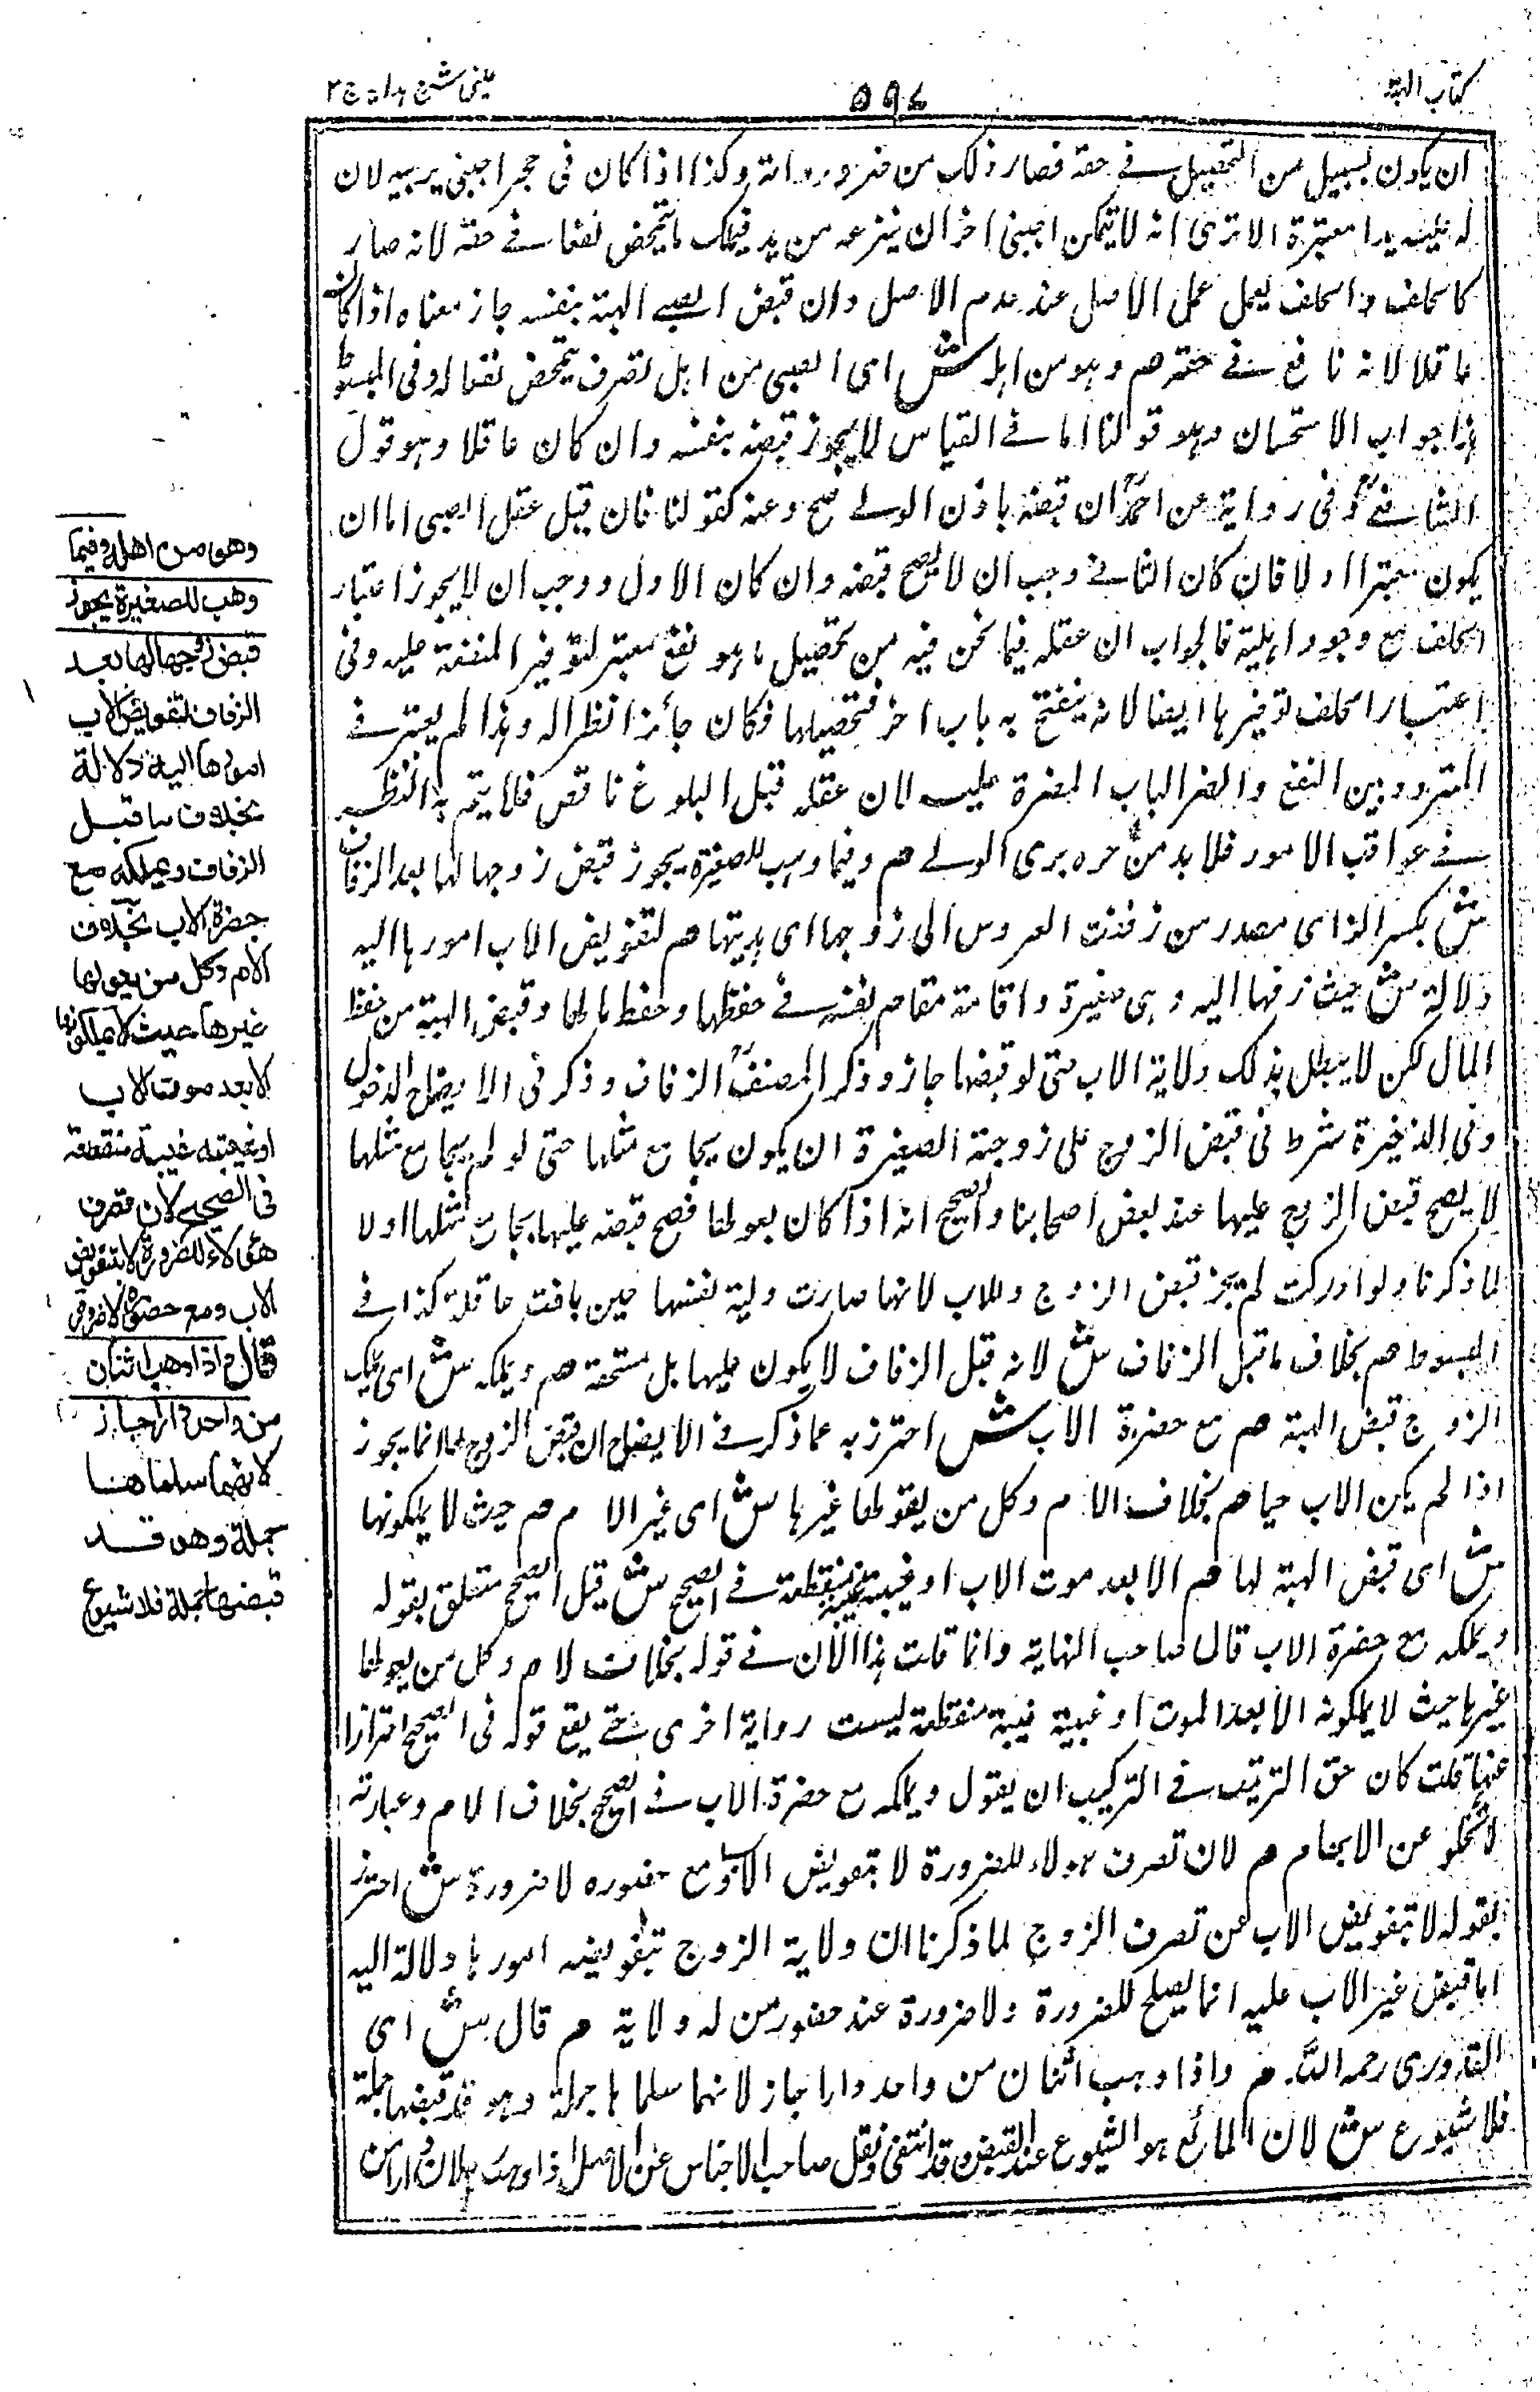 كتاب الهبة
٥٩٧
عینی شرح هدایه ج ٢
ان یکون بسبیل من التحصیل فے حقه فصار ذلک من ضروراته وکذا اذا کان فی حجر اجنبی یربیه لان
له علیه یدا معتبرة الا تری انه لا یتمکن اجنبی اخر ان ینزعه من یده فیملک ما یتمحض نفعا فے حقه لانه صار
کالخلف والخلف یعمل عمل الاصل عند عدم الاصل وان قبض الصبے الهبة بنفسه جاز معناه اذا کان
عاقلا لانه نافع فے حقه هم وهو من اهله ش ای الصبی من اهل تصرف یتمحض نفعا له وفی المبسوط
هذا جواب الاستحسان وهو قولنا اما فے القیاس لا یجوز قبضه بنفسه وان کان عاقلا وهو قول
الشافعے وفی روایة عن احمد ان قبضه باذن الولے صح وعنه کقولنا فان قیل عقل الصبی اما ان
یکون معتبرا اولا فان کان الثانے وجب ان لا یصح قبضه وان کان الاول ووجب ان لا یجوز اعتبار
الخلف مع وجود اهلیة فالجواب ان عقله فیما نحن فیه من تحصیل ما هو نفع معتبر لتوفیر المنفعة علیه وفی
اعتبار الخلف توفیرها ایضا لانه ینفتح به باب اخر لتحصیلها فکان جائزا نظرا له ولهذا لم یعتبر فے
المتردد بین النفع والضر الباب المضرة علیه لان عقله قبل البلوغ ناقص فلا یتم به النظر
فے عواقب الامور فلا بد من جبره برای الولے هم وفیما وهب للصغیرة یجوز قبض زوجها لها بعد الزفاف
ش بکسر الزای مصدر من زففت العروس الی زوجها ای هدیتها هم لتفویض الاب امورها الیه
دلالة ش حیث زفها الیه وهی صغیرة واقامته مقام نفسه فے حفظها وحفظ مالها وقبض الهبة من حفظ
المال لکن لا یبطل بذلک ولایة الاب حتی لو قبضها جاز وذکر المصنف الزفاف وذکر فی الایضاح الدخول
وفی الذخیرة شرط فی قبض الزوج علی زوجته الصغیرة ان یکون یجامع مثلها حتی لو لم یجامع مثلها
لا یصح قبض الزوج علیها عند بعض اصحابنا والصحیح انه اذا کان یعولها فصح قبضه علیها یجامع مثلها اولا
لما ذکرنا ولو ادرکت لم یجز قبض الزوج وللاب لانها صارت ولیة نفسها حین بلغت عاقلة کذا فے
المبسوط هم بخلاف ما قبل الزفاف ش لانه قبل الزفاف لا یکون علیها بل مستحقة هم ویملکه ش ای یملک
الزوج قبض الهبة هم مع حضرة الاب ش احترز به عما ذکر فے الایضاح ان قبض الزوج لها انما یجوز
اذا لم یکن الاب حیا هم بخلاف الام وکل من یعولها غیرها ش ای غیر الام هم حیث لا یملکونها
ش ای قبض الهبة لها هم الا بعد موت الاب او غیبته غیبة منقطعة فے الصحیح ش قیل الصحیح متعلق بقوله
ویملکه مع حضرة الاب قال صاحب النهایة وانما قلت هذا لان فے قوله بخلاف الام وکل من یعولها
غیرها حیث لا یملکونه الا بعد الموت او غیبة غیبة منقطعة لیست روایة اخری حتے یقع قوله فی الصحیح احترازا
عنها قلت کان حق الترتیب فے الترکیب ان یقول ویملکه مع حضرة الاب فے الصحیح بخلاف الام وعبارته
لا تخلو عن الابهام هم لان تصرف هولاء للضرورة لا بتفویض الاب ومع حضوره لا ضرورة ش احترز
بقوله لا بتفویض الاب عن تصرف الزوج لما ذکرنا ان ولایة الزوج بتفویضه امورها دلالة الیه
اما قبض غیر الاب علیه انما یصلح للضرورة ولا ضرورة عند حضور من له ولایة هم قال ش ای
القدوری رحمه الله هم واذا وهب اثنان من واحد دارا جاز لانهما سلماها جملة وهو قد قبضها جملة
فلا شیوع ش لان المانع هو الشیوع عند القبض وقد انتفی ونقل صاحب الاجناس عن الاصل اذا وهب رجلان دارا من
وهو من اهله وفیما
وهب للصغیرة یجوز
قبض زوجها لها بعد
الزفاف لتفویض الاب
امورها الیه دلالة
بخلاف ما قبل
الزفاف ویملکه مع
حضرة الاب بخلاف
الام وکل من یعولها
غیرها حیث لا یملکونها
الا بعد موت الاب
او غیبته غیبة منقطعة
فی الصحیح لان تصرف
هؤلاء للضرورة لا بتفویض
الاب ومع حضوره لا ضرورة
قال واذا وهب اثنان
من واحد دارا جاز
لانهما سلماها
جملة وهو قد
قبضها جملة فلا شیوع